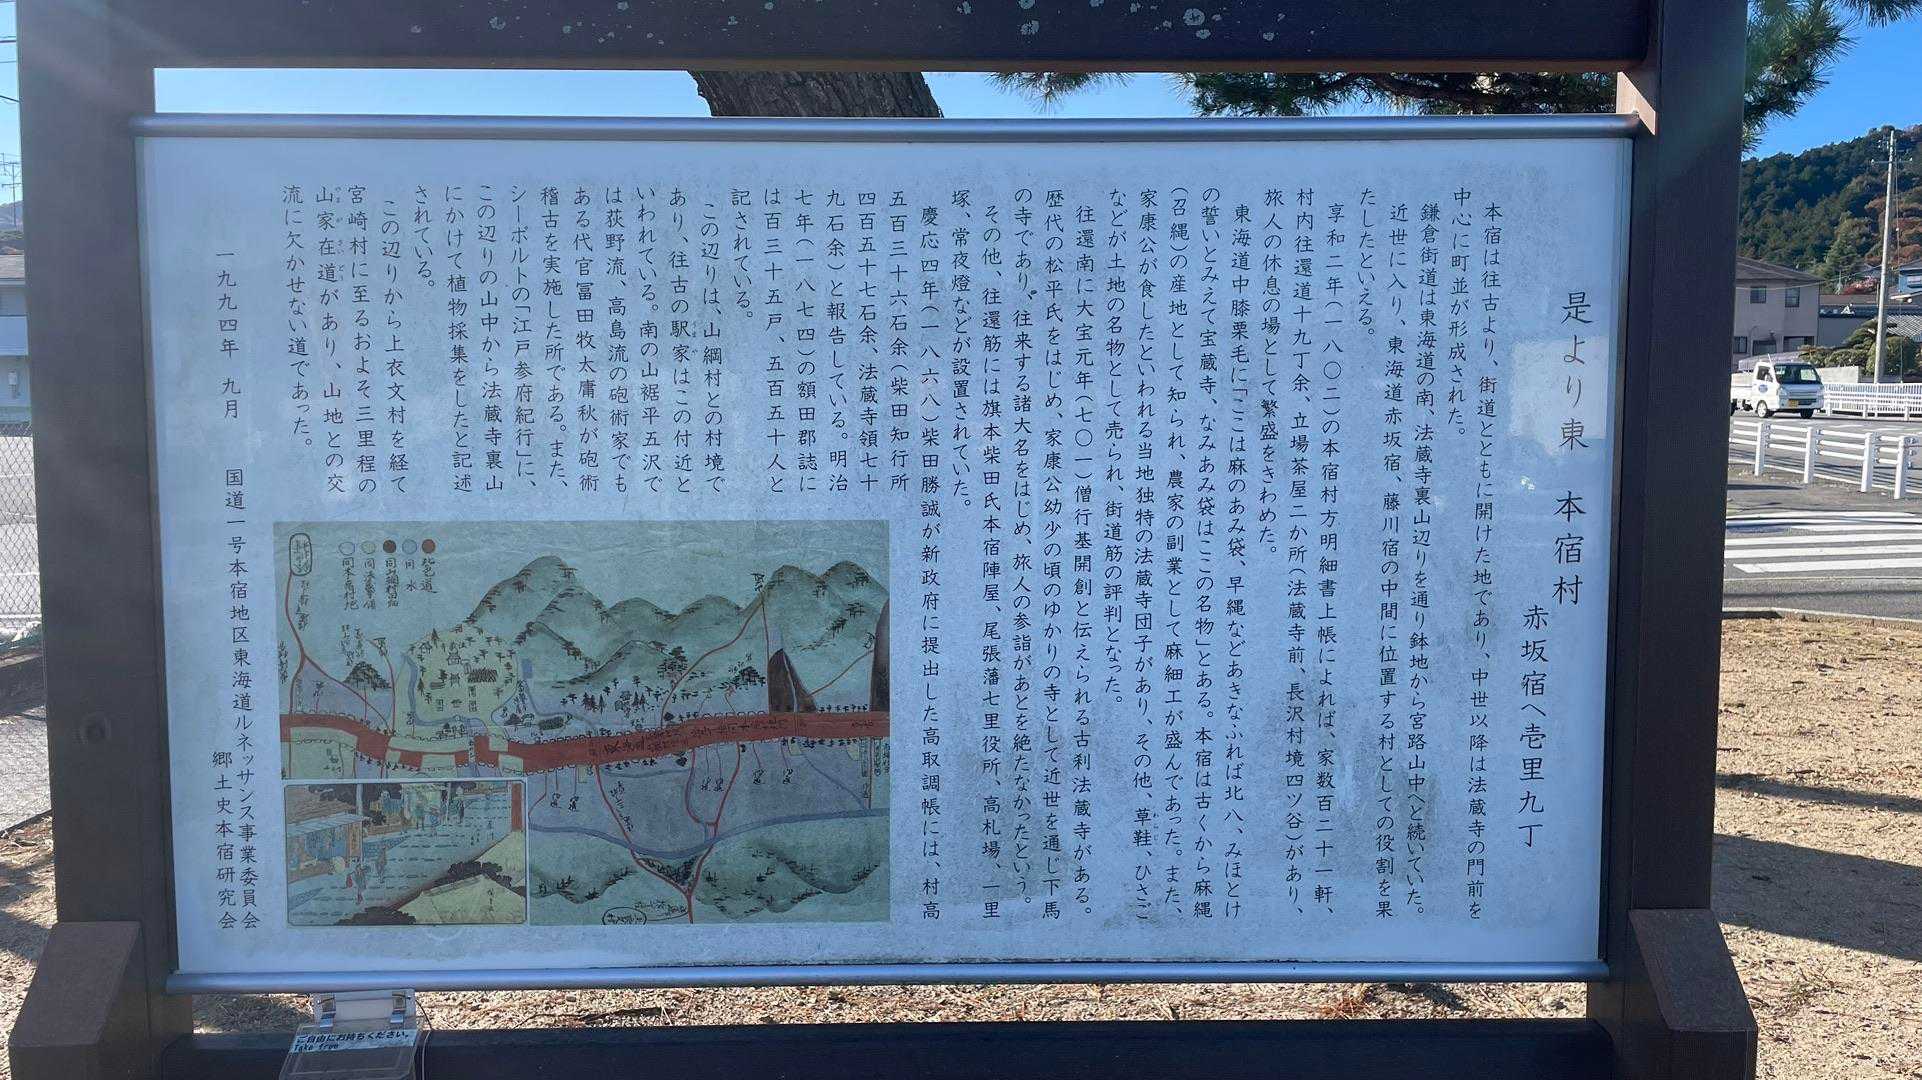 是より東　本宿村
赤坂宿へ壱里九丁
本宿は往古より、街道とともに開けた地であり、中世以降は法蔵寺の門前を
中心に町並が形成された。
鎌倉街道は東海道の南、法蔵寺裏山辺りを通り鉢地から宮路山中へと続いていた。
近世に入り、東海道赤坂宿、藤川宿の中間に位置する村としての役割を果
たしたといえる。
享和二年(一八〇二)の本宿村方明細書上帳によれば、家数百二十一軒、
村内往還道十九丁余、立場茶屋二か所(法蔵寺前、長沢村境四ツ谷)があり、
旅人の休息の場として繁盛をきわめた。
東海道中膝栗毛に「ここは麻のあみ袋、早縄などあきなふれば北八、みほとけ
の誓いとみえて宝蔵寺、なみあみ袋はここの名物」とある。本宿は古くから麻縄
(召縄)の産地として知られ、農家の副業として麻細工が盛んであった。また、
家康公が食したといわれる当地独特の法蔵寺団子があり、その他、草鞋、ひさご
などが土地の名物として売られ、街道筋の評判となった。
往還南に大宝元年(七〇一)僧行基開創と伝えられる古刹法蔵寺がある。
歴代の松平氏をはじめ、家康公幼少の頃のゆかりの寺として近世を通じ下馬
の寺であり、往来する諸大名をはじめ、旅人の参詣があとを絶たなかったという。
その他、往還筋には旗本柴田氏本宿陣屋、尾張藩七里役所、高札場、一里
塚、常夜燈などが設置されていた。
慶応四年(一八六八)柴田勝誠が新政府に提出した高取調帳には、村高
五百三十六石余(柴田知行所
四百五十七石余、法蔵寺領七十
九石余)と報告している。明治
七年(一八七四)の額田郡誌に
は百三十五戸、五百五十人と
記されている。
この辺りは、山綱村との村境で
あり、往古の駅家はこの付近と
いわれている。南の山裾平五沢で
は荻野流、高島流の砲術家でも
ある代官冨田牧太庸秋が砲術
稽古を実施した所である。また、
シーボルトの「江戸参府紀行」に、
この辺りの山中から法蔵寺裏山
にかけて植物採集をしたと記述
されている。
この辺りから上衣文村を経て
宮崎村に至るおよそ三里程の
山家在道があり、山地との交
流に欠かせない道であった。
一九九四年　九月
国道一号本宿地区東海道ルネッサンス事業委員会
郷土史本宿研究会
ご自由にお持ちください。
Take free